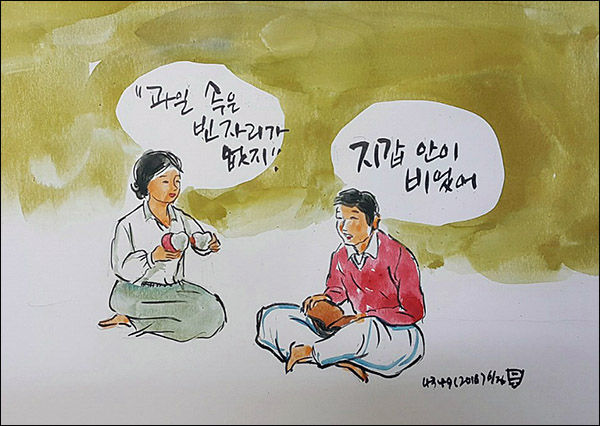 "과일 속은
빈자리가
없지"
지갑 안이
비었어
(2018) 6/26